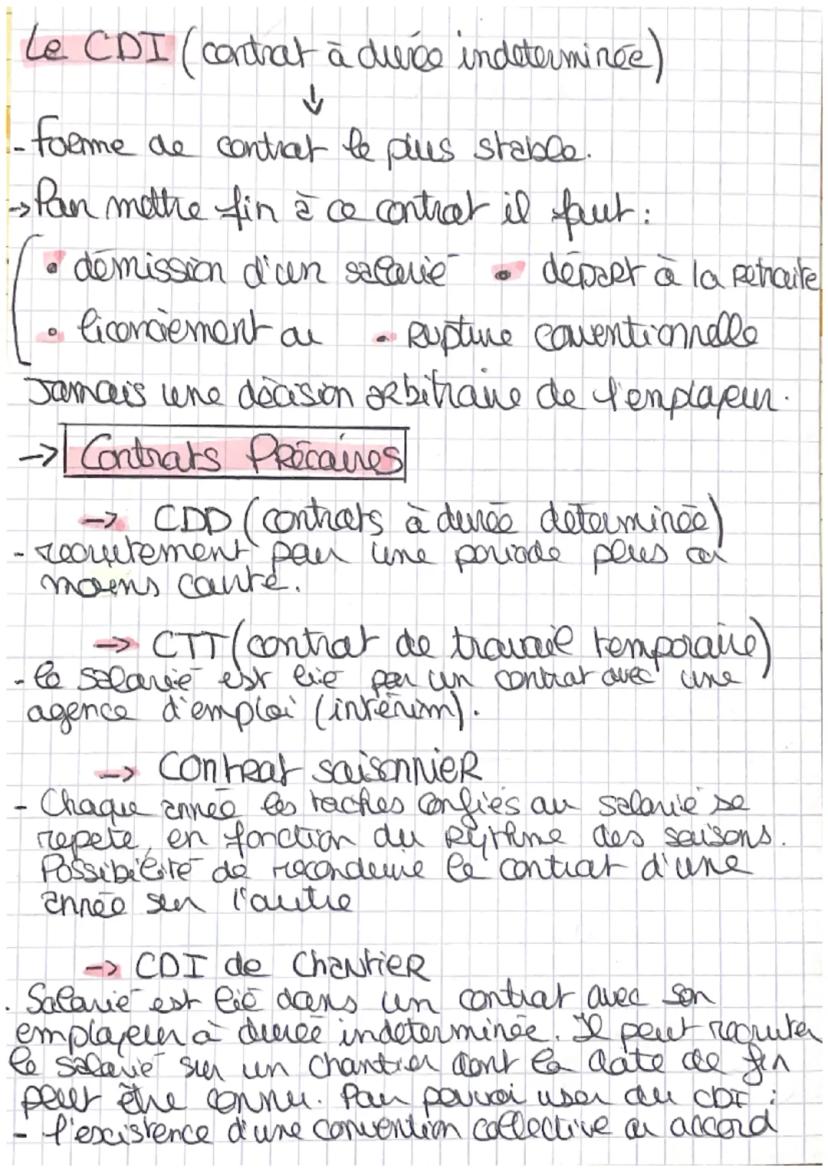 Le CDI (contrat à durée indeterminée)
↓
- forme de contrat le plus stable.
→ Pour mettre fin à ce contrat il faut :
• démission d'un salarié • départ à la retraite
• licenciement ou • Rupture conventionnelle
Jamais une décision arbitraire de l'employeur.
→ Contrats Précaires
→ CDD (contrats à durée determinée)
- recrutement pour une période plus ou
moins courte.
→ CTT (contrat de travail temporaire)
- le salarié est lié par un contrat avec une
agence d'emploi (intérim).
→ Contrat saisonnier
- Chaque année les taches confiés au salarié se
repete, en fonction du rythme des saisons.
Possibilité de reconduire le contrat d'une
année sur l'autre
→ CDI de Chantier
. Salarié est lié dans un contrat avec son
employeur à durée indeterminée. Il peut recruter
le salarié sur un chantier dont la date de fin
peut être connu. Pour pouvoir user du CDI :
- l'excistence d'une convention collective ou accord